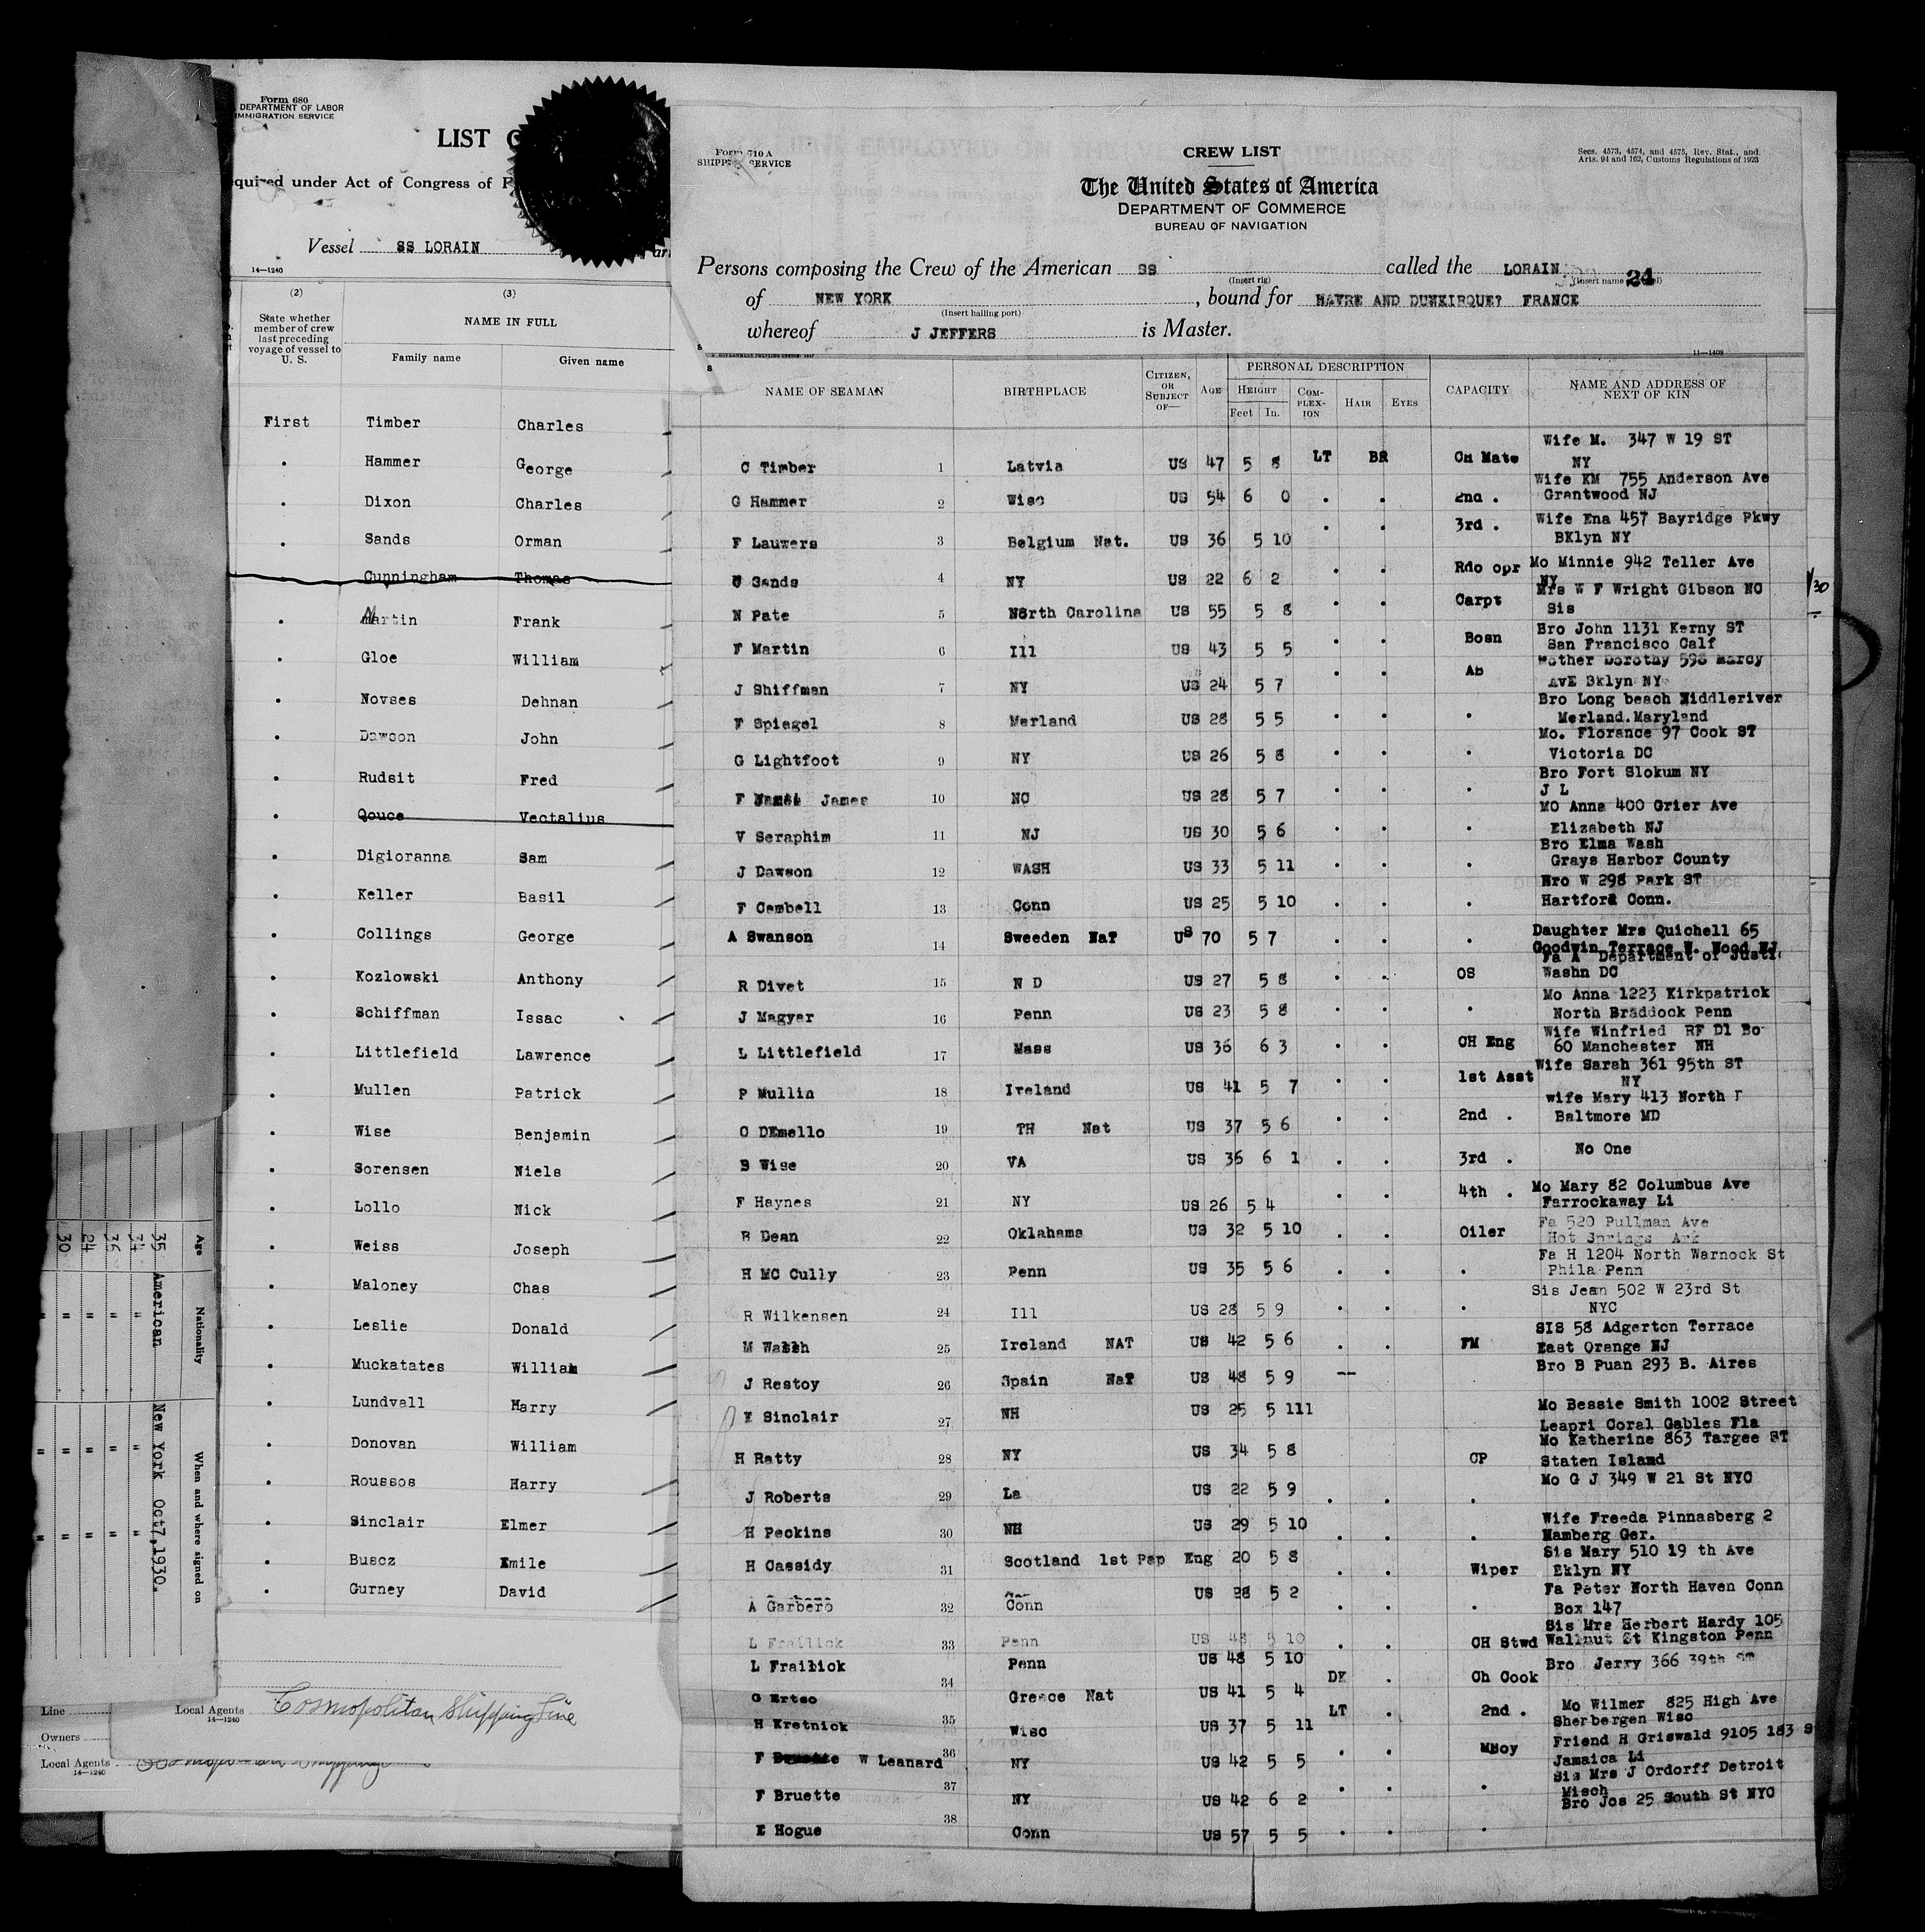 Form 680
DEPARTMENT OF LABOR
IMMIGRATION SERVICE
LIST
equired under Act of Congress of F
Vessel SS LORAIN
14—1240
(2) (3)
State whether member of crew last preceding voyage of vessel to U. S.
NAME IN FULL
Family name Given name
First Timber Charles
Hammer George
Dixon Charles
Sands Orman
Cunningham Thomas
Martin Frank
Gloe William
Novses Dehnan
Dawson John
Rudsit Fred
Qouce Vectalius
Digioranna Sam
Keller Basil
Collings George
Kozlowski Anthony
Schiffman Issac
Littlefield Lawrence
Mullen Patrick
Wise Benjamin
Sorensen Niels
Lollo Nick
Weiss Joseph
Maloney Chas
Leslie Donald
Muckatates William
Lundvall Harry
Donovan William
Roussos Harry
Sinclair Elmer
Buscz Emile
Gurney David
Local Agents Cosmopolitan Shipping Line
14—1240
Line
Owners
Local Agents
14—1240
Age Nationality When and where signed on
35 American New York Oct7,1930.
34 " " "
36 " " "
24 " " "
30 " " "
Form 710 A
SHIPPING SERVICE
CREW LIST
Secs. 4573, 4574, and 4575, Rev. Stat., and
Arts. 94 and 162, Customs Regulations of 1923
The United States of America
DEPARTMENT OF COMMERCE
BUREAU OF NAVIGATION
Persons composing the Crew of the American SS called the LORAIN 24
(Insert rig)
of NEW YORK , bound for HAVRE AND DUNKIRQUE? FRANCE
(Insert hailing port)
whereof J JEFFERS is Master.
11—1408
NAME OF SEAMAN BIRTHPLACE CITIZEN, OR SUBJECT OF— AGE PERSONAL DESCRIPTION CAPACITY NAME AND ADDRESS OF NEXT OF KIN
HEIGHT COM-PLEX-ION HAIR EYES
Feet In.
C Timber 1 Latvia US 47 5 8 LT BR CH Mate Wife M. 347 W 19 ST NY
G Hammer 2 Wisc US 54 6 0 . . 2nd . Wife KM 755 Anderson Ave Grantwood NJ
F Lauwers 3 Belgium Nat. US 36 5 10 . . 3rd . Wife Ena 457 Bayridge Pkwy BKlyn NY
O Sands 4 NY US 22 6 2 . . Rdo opr Mo Minnie 942 Teller Ave NY
N Pate 5 North Carolina US 55 5 8 . . Carpt Mrs W F Wright Gibson NC Sis
F Martin 6 Ill US 43 5 5 . . Bosn Bro John 1131 Kerny ST San Francisco Calf
J Shiffman 7 NY US 24 5 7 . . AB Mother Dorothy 598 Marcy AvE Bklyn NY
F Spiegel 8 Merland US 28 5 5 . . . Bro Long beach Middleriver Merland.Maryland
G Lightfoot 9 NY US 26 5 8 . . . Mo. Florance 97 Cook ST Victoria DC
F James 10 NC US 28 5 7 . . . Bro Fort Slokum NY J L
V Seraphim 11 NJ US 30 5 6 . . . MO Anna 400 Grier Ave Elizabeth NJ
J Dawson 12 WASH US 33 5 11 . . . Bro Elma Wash Grays Harbor County
F Cembell 13 Conn US 25 5 10 . . . Bro W 298 Park ST Hartford Conn.
A Swanson 14 Sweeden NaT US 70 5 7 . . . Daughter Mrs Quichell 65 Goodwin Terrace W. Wood NJ
R Divet 15 N D US 27 5 8 . . OS Fa A Department of Justi Washn DC
J Magyar 16 Penn US 23 5 8 . . . Mo Anna 1223 Kirkpatrick North Braddock Penn
L Littlefield 17 Mass US 36 6 3 . . CH Eng Wife Winfried RF D1 Bo 60 Manchester NH
P Mullin 18 Ireland US 41 5 7 . . 1st Asst Wife Sarah 361 95th ST NY
C DEmello 19 TH Nat US 37 5 6 . . 2nd . wife Mary 413 North Baltmore MD
B Wise 20 VA US 36 6 1 . . 3rd . No One
F Haynes 21 NY US 26 5 4 . . 4th . Mo Mary 82 Columbus Ave Farrockaway Li
R Dean 22 Oklahama US 32 5 10 . . Oiler Fa 520 Pullman Ave Hot Springs Ark
H MC Cully 23 Penn US 35 5 6 . . . Fa H 1204 North Warnock St Phila Penn
R Wilkensen 24 Ill US 28 5 9 . . . Sis Jean 502 W 23rd St NYC
M Walsh 25 Ireland NAT US 42 5 6 . . FM SIS 58 Adgerton Terrace East Orange NJ
J Restoy 26 Spain NaT US 48 5 9 -- Bro B Puan 293 B. Aires
E Sinclair 27 NH US 25 5 111 Mo Bessie Smith 1002 Street Leapri Coral Gables Fla
H Ratty 28 NY US 34 5 8 CP Mo Katherine 863 Targee ST Staten Island
J Roberts 29 La US 22 5 9 . . . Mo G J 349 W 21 St NYC
H Peckins 30 NH US 29 5 10 . . . Wife Freeda Pinnasberg 2 Hamberg Ger.
H Cassidy 31 Scotland 1st Pap Eng 20 5 8 . . Wiper Sis Mary 510 19 th Ave Bklyn NY
A Garbero 32 Conn US 28 5 2 . . . Fa Peter North Haven Conn Box 147
L Frailick 33 Penn US 48 5 10 . . CH Stwd Sis Mrs Herbert Hardy 105 Wallnut St Kingston Penn
L Frailick Penn US 48 5 10
G Ertso 34 Greece Nat US 41 5 4 DK . Ch Cook Bro Jerry 366 39th
H Kretnick 35 Wisc US 37 5 11 LT . 2nd . Mo Wilmer 825 High Ave Sherbergen Wisc
F W Leanard 36 NY US 42 5 5 . . MBoy Friend H Griswald 9105 183 S Jamaica Li
F Bruette 37 NY US 42 6 2 . . . Sis Mrs J Ordorff Detroit Misch
E Hogue 38 Conn US 57 5 5 . . . Bro Jos 25 South St NYC
30